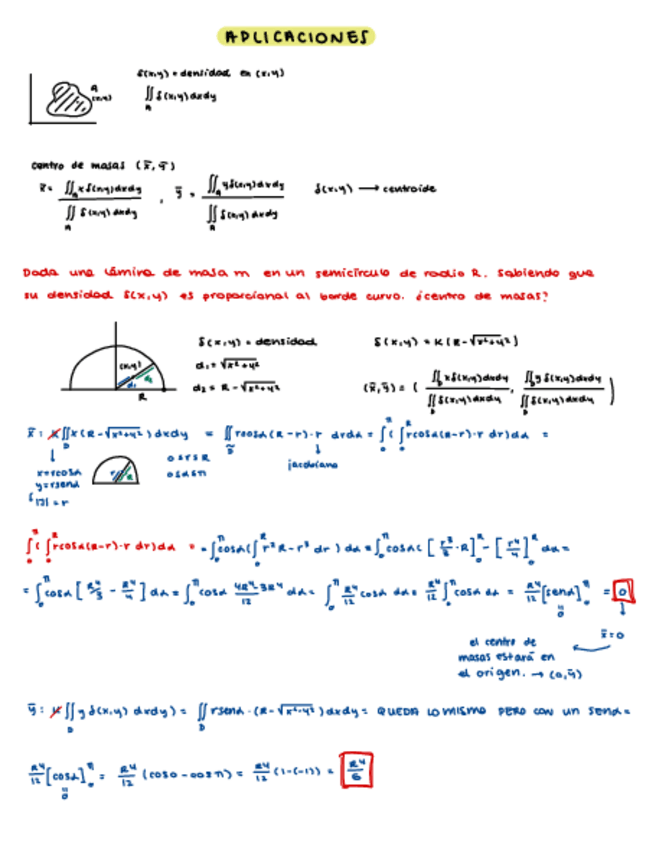 APLICACIONES
δ(x,y) = densidad en (x,y)
A
(x,y)
∬_A δ(x,y) dxdy
centro de masas (x̄, ȳ)
x̄ = ∬_A x δ(x,y) dxdy / ∬_A δ(x,y) dxdy , ȳ = ∬_A y δ(x,y) dxdy / ∬_A δ(x,y) dxdy δ(x,y) → centroide
Dada una lámina de masa m en un semicírculo de radio R. Sabiendo que
su densidad δ(x,y) es proporcional al borde curvo. ¿centro de masas?
(x,y)
d₁ d₂
R
δ(x,y) = densidad δ(x,y) = K(R-√x²+y²)
d₁ = √x²+y²
d₂ = R-√x²+y² (x̄,ȳ) = ( ∬_D xδ(x,y)dxdy / ∬_D δ(x,y)dxdy , ∬_D yδ(x,y)dxdy / ∬_D δ(x,y)dxdy )
x̄: K∬_D x(R-√x²+y²) dxdy = ∬_D̃ rcosα(R-r)·r drdα = ∫₀^π (∫₀^R rcosα(R-r)·r dr) dα =
jacobiano
x=rcosα
y=rsenα
|J| = r
0≤r≤R
0≤α≤π
∫₀^π (∫₀^R rcosα(R-r)·r dr) dα = = ∫₀^π cosα (∫₀^R r²R-r³ dr) dα = ∫₀^π cosα ( [r³/3 ·R]₀^R - [r⁴/4]₀^R dα =
= ∫₀^π cosα [R⁴/3 - R⁴/4] dα = ∫₀^π cosα (4R⁴-3R⁴)/12 dα = ∫₀^π R⁴/12 cosα dα = R⁴/12 ∫₀^π cosα dα = R⁴/12 [senα]₀^π = 0
0
x̄=0
el centro de
masas estará en
el origen. → (0,ȳ)
ȳ: K∬_D y δ(x,y) dxdy) = ∬_D rsenα·(R-√x²+y²) dxdy = QUEDA LO MISMO PERO CON UN SENα =
R⁴/12 [cosα]₀^π = R⁴/12 (cos0 - cosπ) = R⁴/12 (1-(-1)) = R⁴/6
0